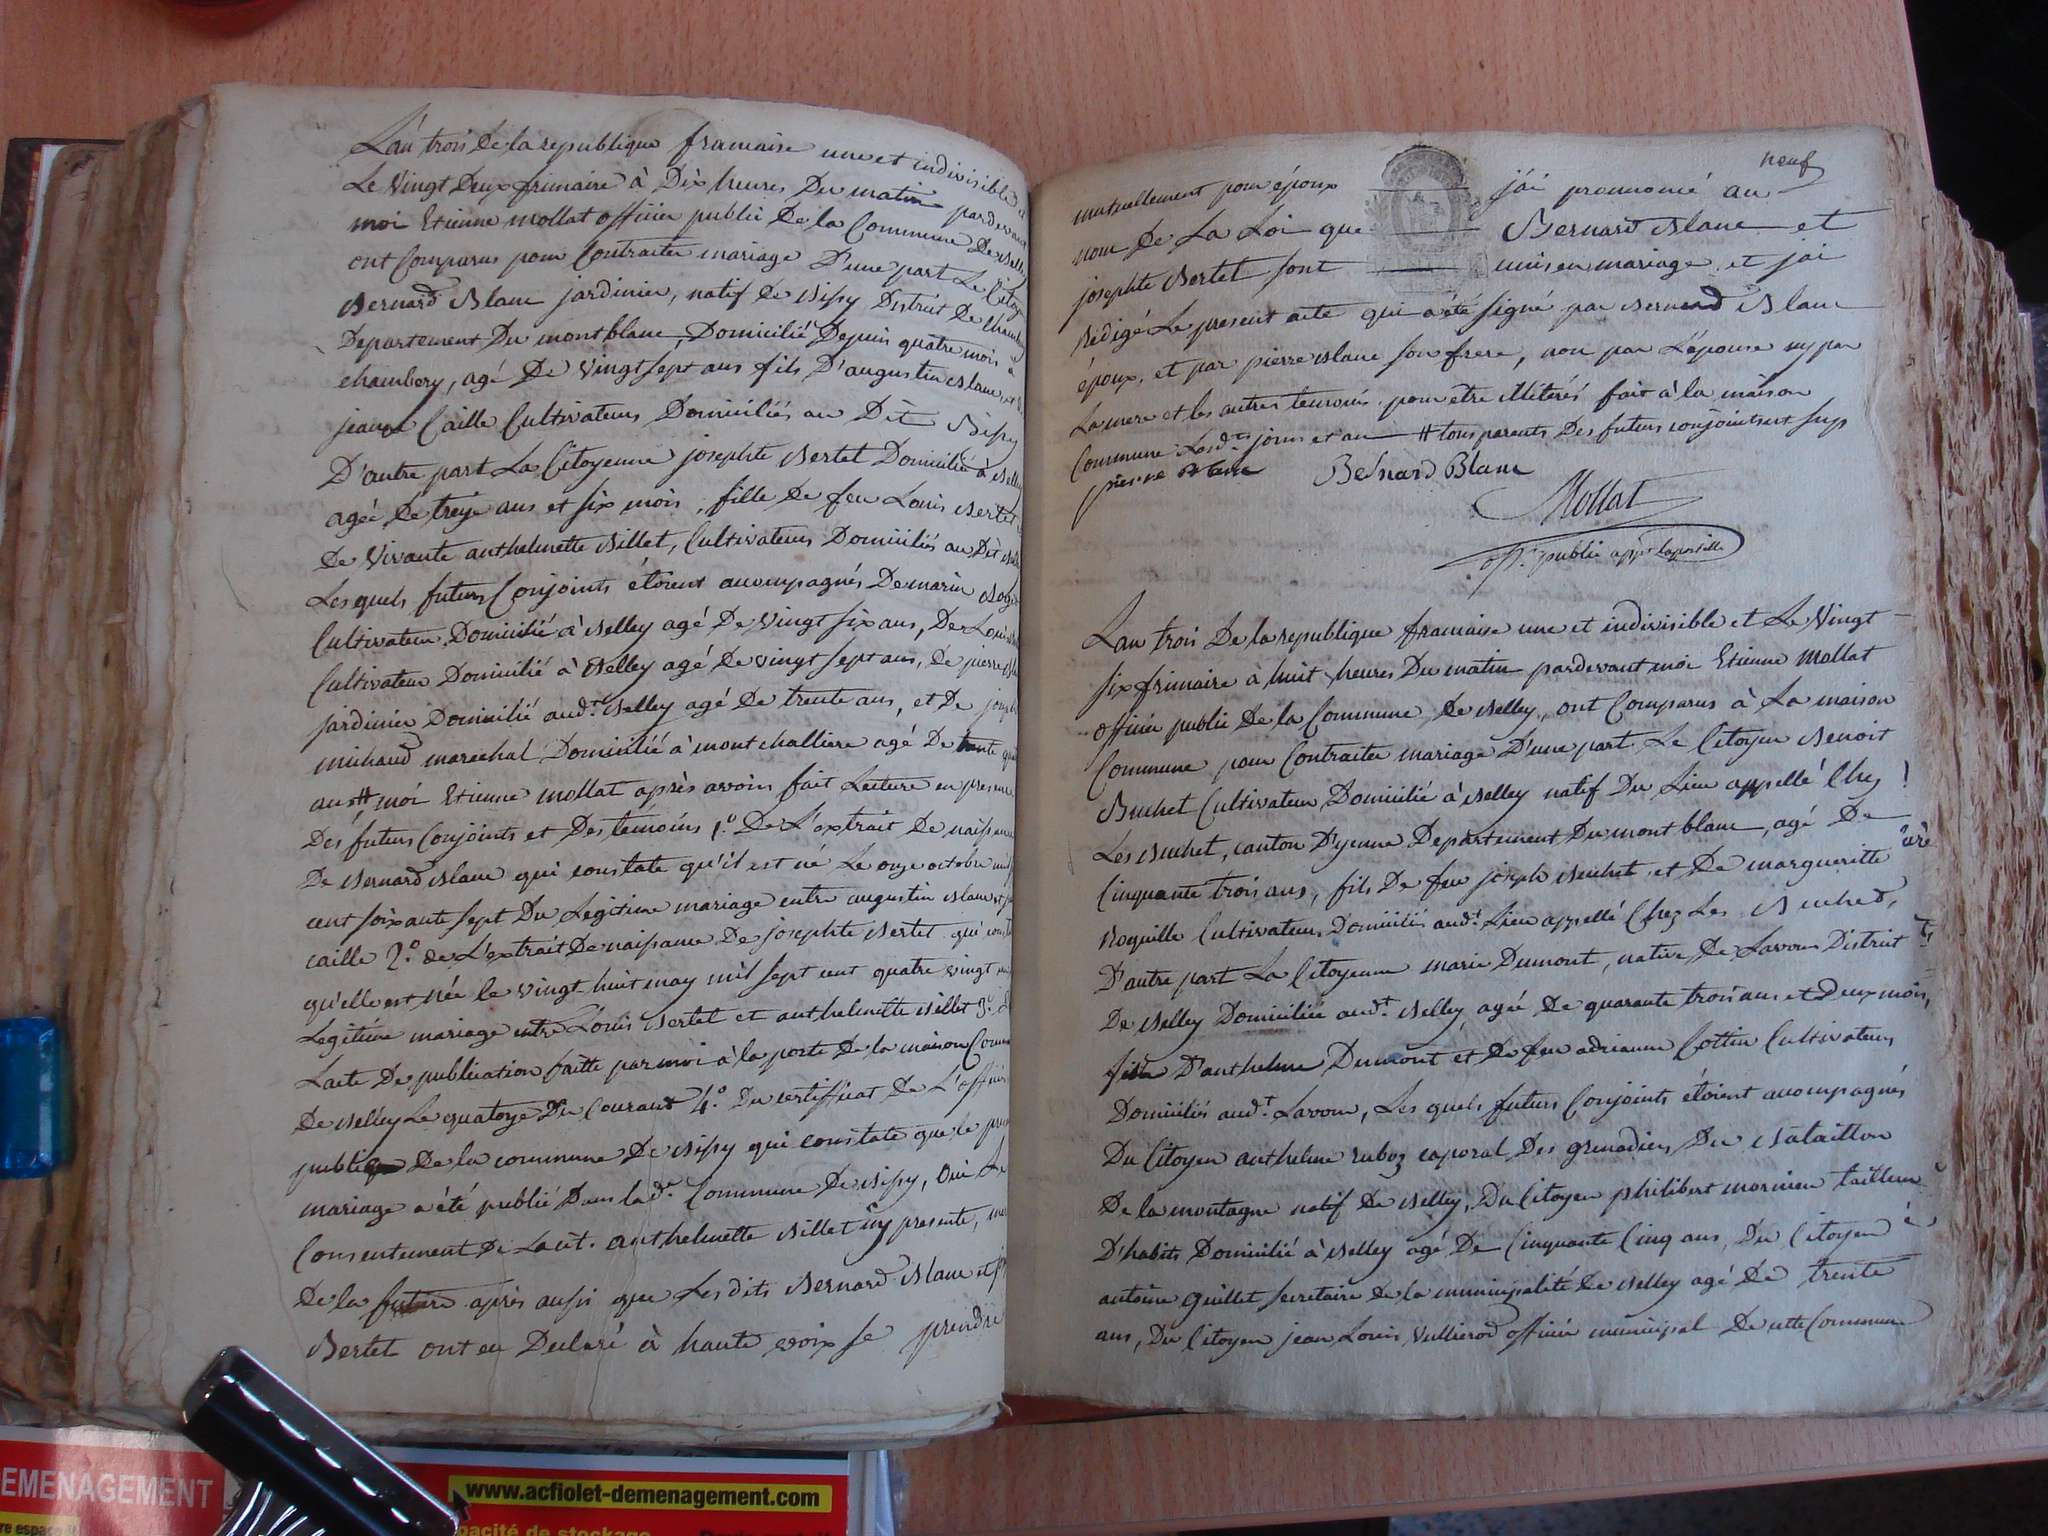 L'an trois de la republique francaise une et indivisible
Le Vingt Deux frimaire à Dix heures Du matin pardevant
moi Etienne Mollat officier public De la Commune De Belley
ont Comparus pour Contracter mariage D'une part Le Citoy
Bernard Blanc jardinier, natif de Bissy District De Chamb
Departement Du montblanc, Domicilié Depuis quatre mois à
chambery, agé De Vingt sept ans fils D'augustin Blanc, et
jeanne Caille Cultivateurs Domiciliés au Dit Bissy
D'autre part La Citoyenne josephte Bertet Domicilié à Belley
agée De treize ans et six mois, fille De feu Louis Bertet
De Vivante anthelmette Billet, Cultivateurs Domiciliés au Dit
Lesquels futurs Conjoints étoient accompagnés De marin
Cultivateur Domicilié à Belley agé De Vingt six ans, De Louis
Cultivateur Domicilié à Belley agé de vingt sept ans, De pierre
jardinier Domicilié aud.t Belley agé De trente ans, et De joseph
michaud marechal Domicilié à mont challiere agé De
ans # moi Etienne mollat après avoir fait Lecture en presence
Des futurs Conjoints et Des temoins 1.o De L'extrait De naissance
De Bernard Blanc qui constate qu'il est né Le onze octobre mil
cent soixante sept Du Legitime mariage entre augustin Blanc et
caille 2.o de L'extrait De naissance De josephte Bertet qui
qu'elle est née le vingt-huit may mil sept cent quatre vingt
Legitime mariage entre Louis Bertet et anthelmette Billet 3.o
L'acte De publication faitte par moi à la porte De la maison
De Belley Le quatorze Du Courant 4.o Du certifficat De L'officier
public De la commune De Bissy qui constate que le
mariage a été publié Dans la d.e Commune De Bissy, Oui Le
Consentement De La cit. anthelmette Billet icy presente,
De la future après aussi que Lesdits Bernard Blanc et
Bertet ont eu Declaré à haute voix se prendre
neuf
mutuellement pour époux j'ai prononcé au
nom De La Loi que Bernard Blanc et
josephte Bertet sont unis en mariage et j'ai
Redigé Le present acte qui a été signé par Bernard Blanc
époux, et par pierre Blanc son frere, non par L'épouse ny par
La mere et les autres temoins pour etre illiterés fait à la maison
Commune Lesd.ts jour et an # tous parents Des futurs conjoints
pierre Blanc Bernard Blanc
Mollat
off. public
L'an trois De la republique francaise une et indivisible et Le Vingt
six frimaire à huit heures Du matin pardevant moi Etienne Mollat
officier public De la Commune de Belley, ont Comparus à La maison
Commune pour Contracter mariage D'une part Le Citoyen Benoit
Buchet Cultivateur Domicilié à Belley natif Du Lieu appellé Chez
Les Buchet, canton D'yenne Departement Du mont blanc, agé De
Cinquante trois ans, fils De feu joseph Buchet et De margueritte
Roquille Cultivateurs Domiciliés aud.t Lieu appellé Chez Les Buchet,
D'autre part La Citoyenne marie Dumont, native De Lavour District
De Belley Domiciliée aud.t Belley agée De quarante trois ans et Deux mois,
fille D'anthelme Dumont et De feu adrianne Cottin Cultivateurs
Domiciliés aud.t Lavour, Les quels futurs Conjoints étoient accompagnés
Du Citoyen anthelme rubog caporal Des grenadiers Du Bataillon
De la montagne natif De Belley, Du Citoyen philibert mornieu tailleur
D'habits Domicilié à Belley agé De Cinquante Cinq ans, Du Citoyen
antoine Guillet secretaire De la municipalité De Belley agé De trente
ans, Du Citoyen jean Louis Vullierod officier municipal De cette Commune
EMENAGEMENT
www.acfiolet-demenagement.com